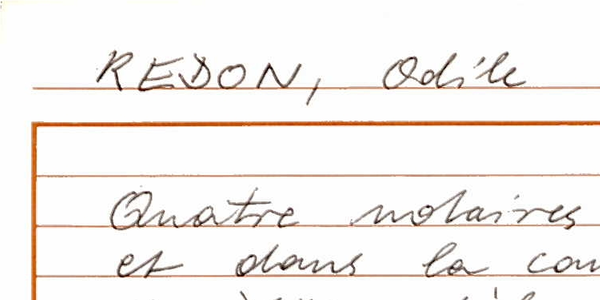 REDON, Odile
Quatre notaires
et dans la